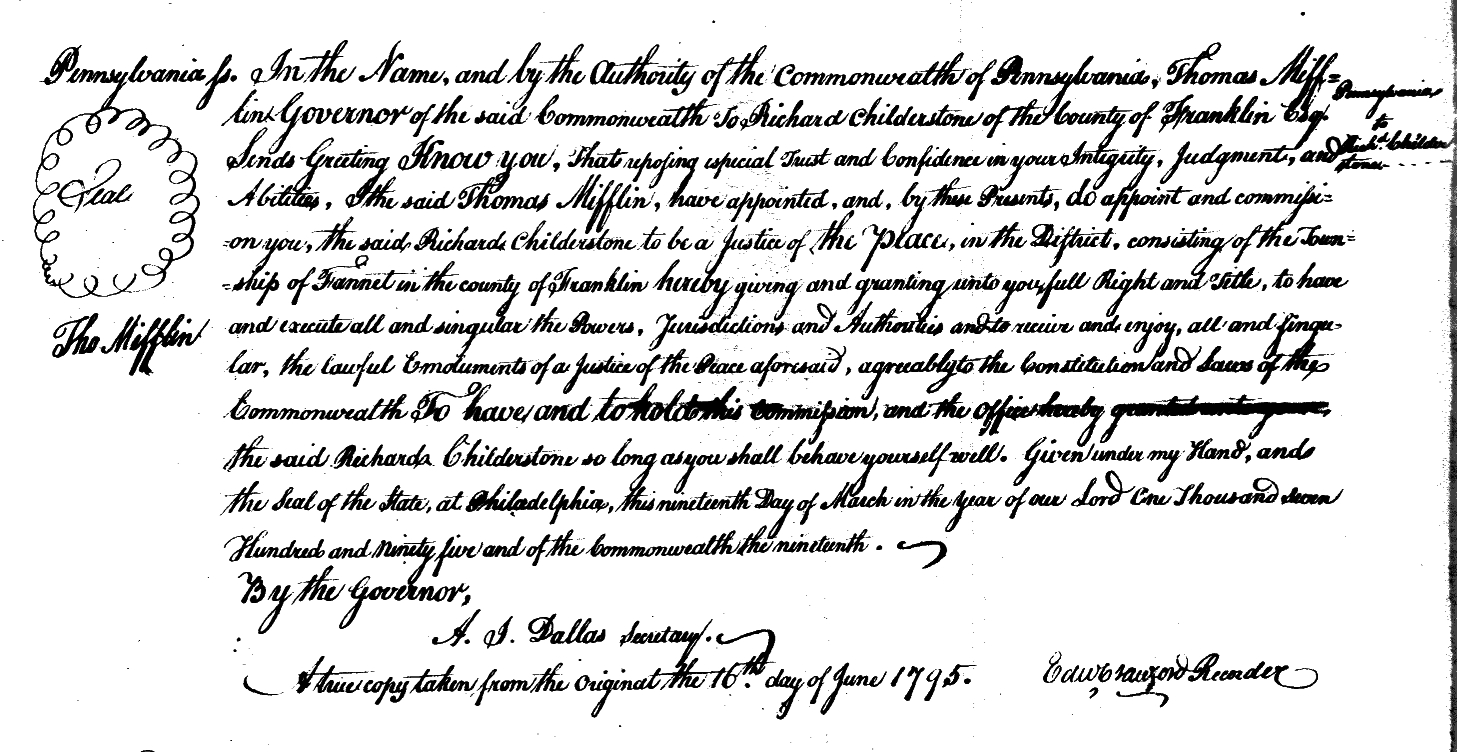 Pennsylvania ss. In the Name, and by the Authority of the Commonwealth of Pennsylvania, Thomas Miff=
lin Governor of the said Commonwealth To Richard Childerstone of the County of Franklin Esq.
Sends Greeting Know you, That reposing especial Trust and Confidence in your Integrity, Judgment, and
Abilities, I the said Thomas Mifflin, have appointed, and, by these Presents, do appoint and commissi=
=on you, the said Richard Childerstone to be a Justice of the Peace, in the District, consisting of the Town=
=ship of Fannet in the county of Franklin hereby giving and granting unto you full Right and Title, to have
and execute all and singular the Powers, Jurisdictions and Authorities and to receive and enjoy, all and singu=
lar, the lawful Emoluments of a Justice of the Peace aforesaid, agreeably to the Constitution and Laws of the
Commonwealth To have and to hold this Commission, and the Office hereby granted unto you
the said Richard Childerstone so long as you shall behave yourself well. Given under my Hand, and
the Seal of the State, at Philadelphia, this nineteenth Day of March in the year of our Lord One Thousand seven
Hundred and ninety five and of the Commonwealth the nineteenth.
By the Governor,
A. J. Dallas Secretary.
A true copy taken from the original the 16th. day of June 1795.
Edw Crawford Recorder
Seal
Tho Mifflin
Pennsylvania
to
Richd. Childer
stone